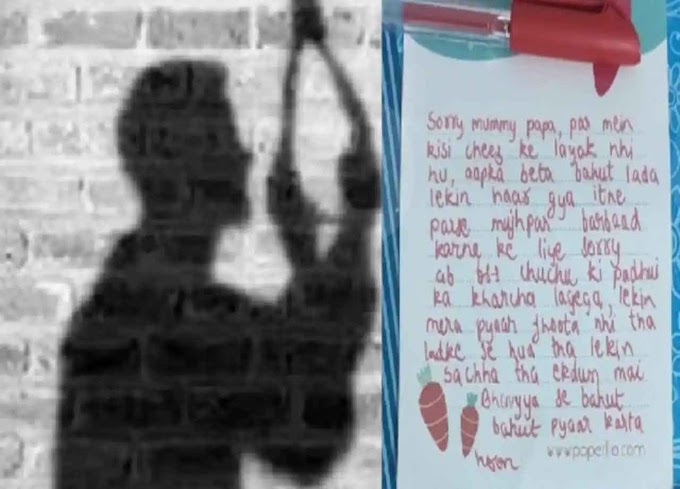 Sorry mummy papa, par mein
kisi cheez ke layak nhi
hu, aapka beta bahut lada
lekin haar gya itne
paise mujhpar barbaad
karne ke liye sorry
ab bst chuchu ki padhai
ka kharcha lagega, lekin
mera pyaar jhoota nhi tha
ladke se hua tha lekin
sachha tha ekdum mai
Bhavyya se bahut
bahut pyaar karta
hoon
www.paperlla.com